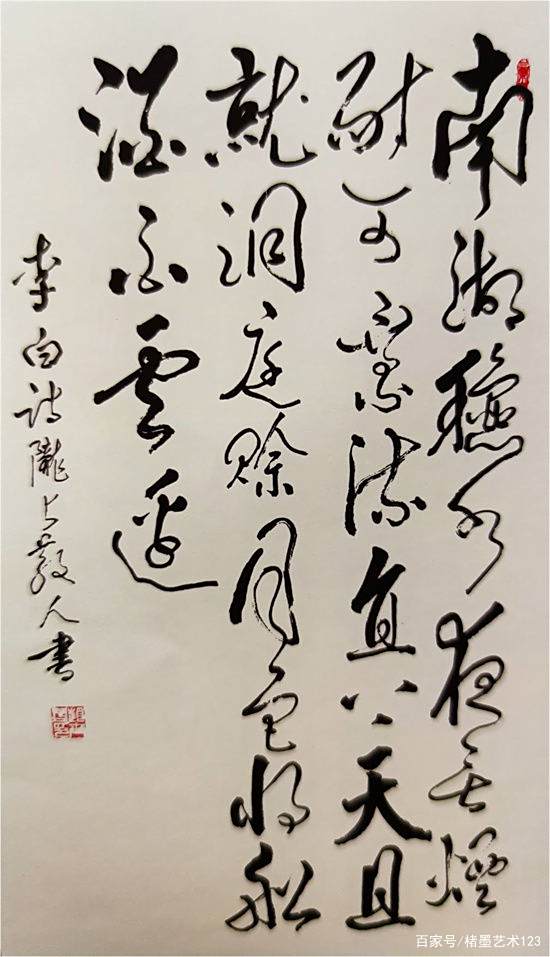 南湖穐水夜无煙
耐可乘流直上天且
就洞庭赊月色将船
酒白云边
李白诗隴上散人书
百家号/楮墨艺术123